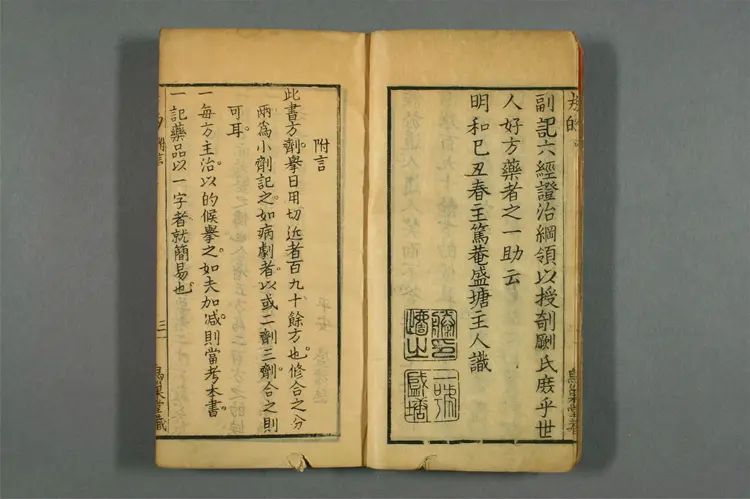 副記六經證治綱領以授剞劂氏庶乎世
人好方藥者之一助云
明和己丑春王篤菴盛塘主人識
附言
此書方劑擧日用切近者百九十餘方也修合之分
兩爲小劑記之如病劇者以或二劑三劑合之則
可耳
一每方主治以的候擧之如夫加减則當考本書
一記藥品以一字者就簡易也
三